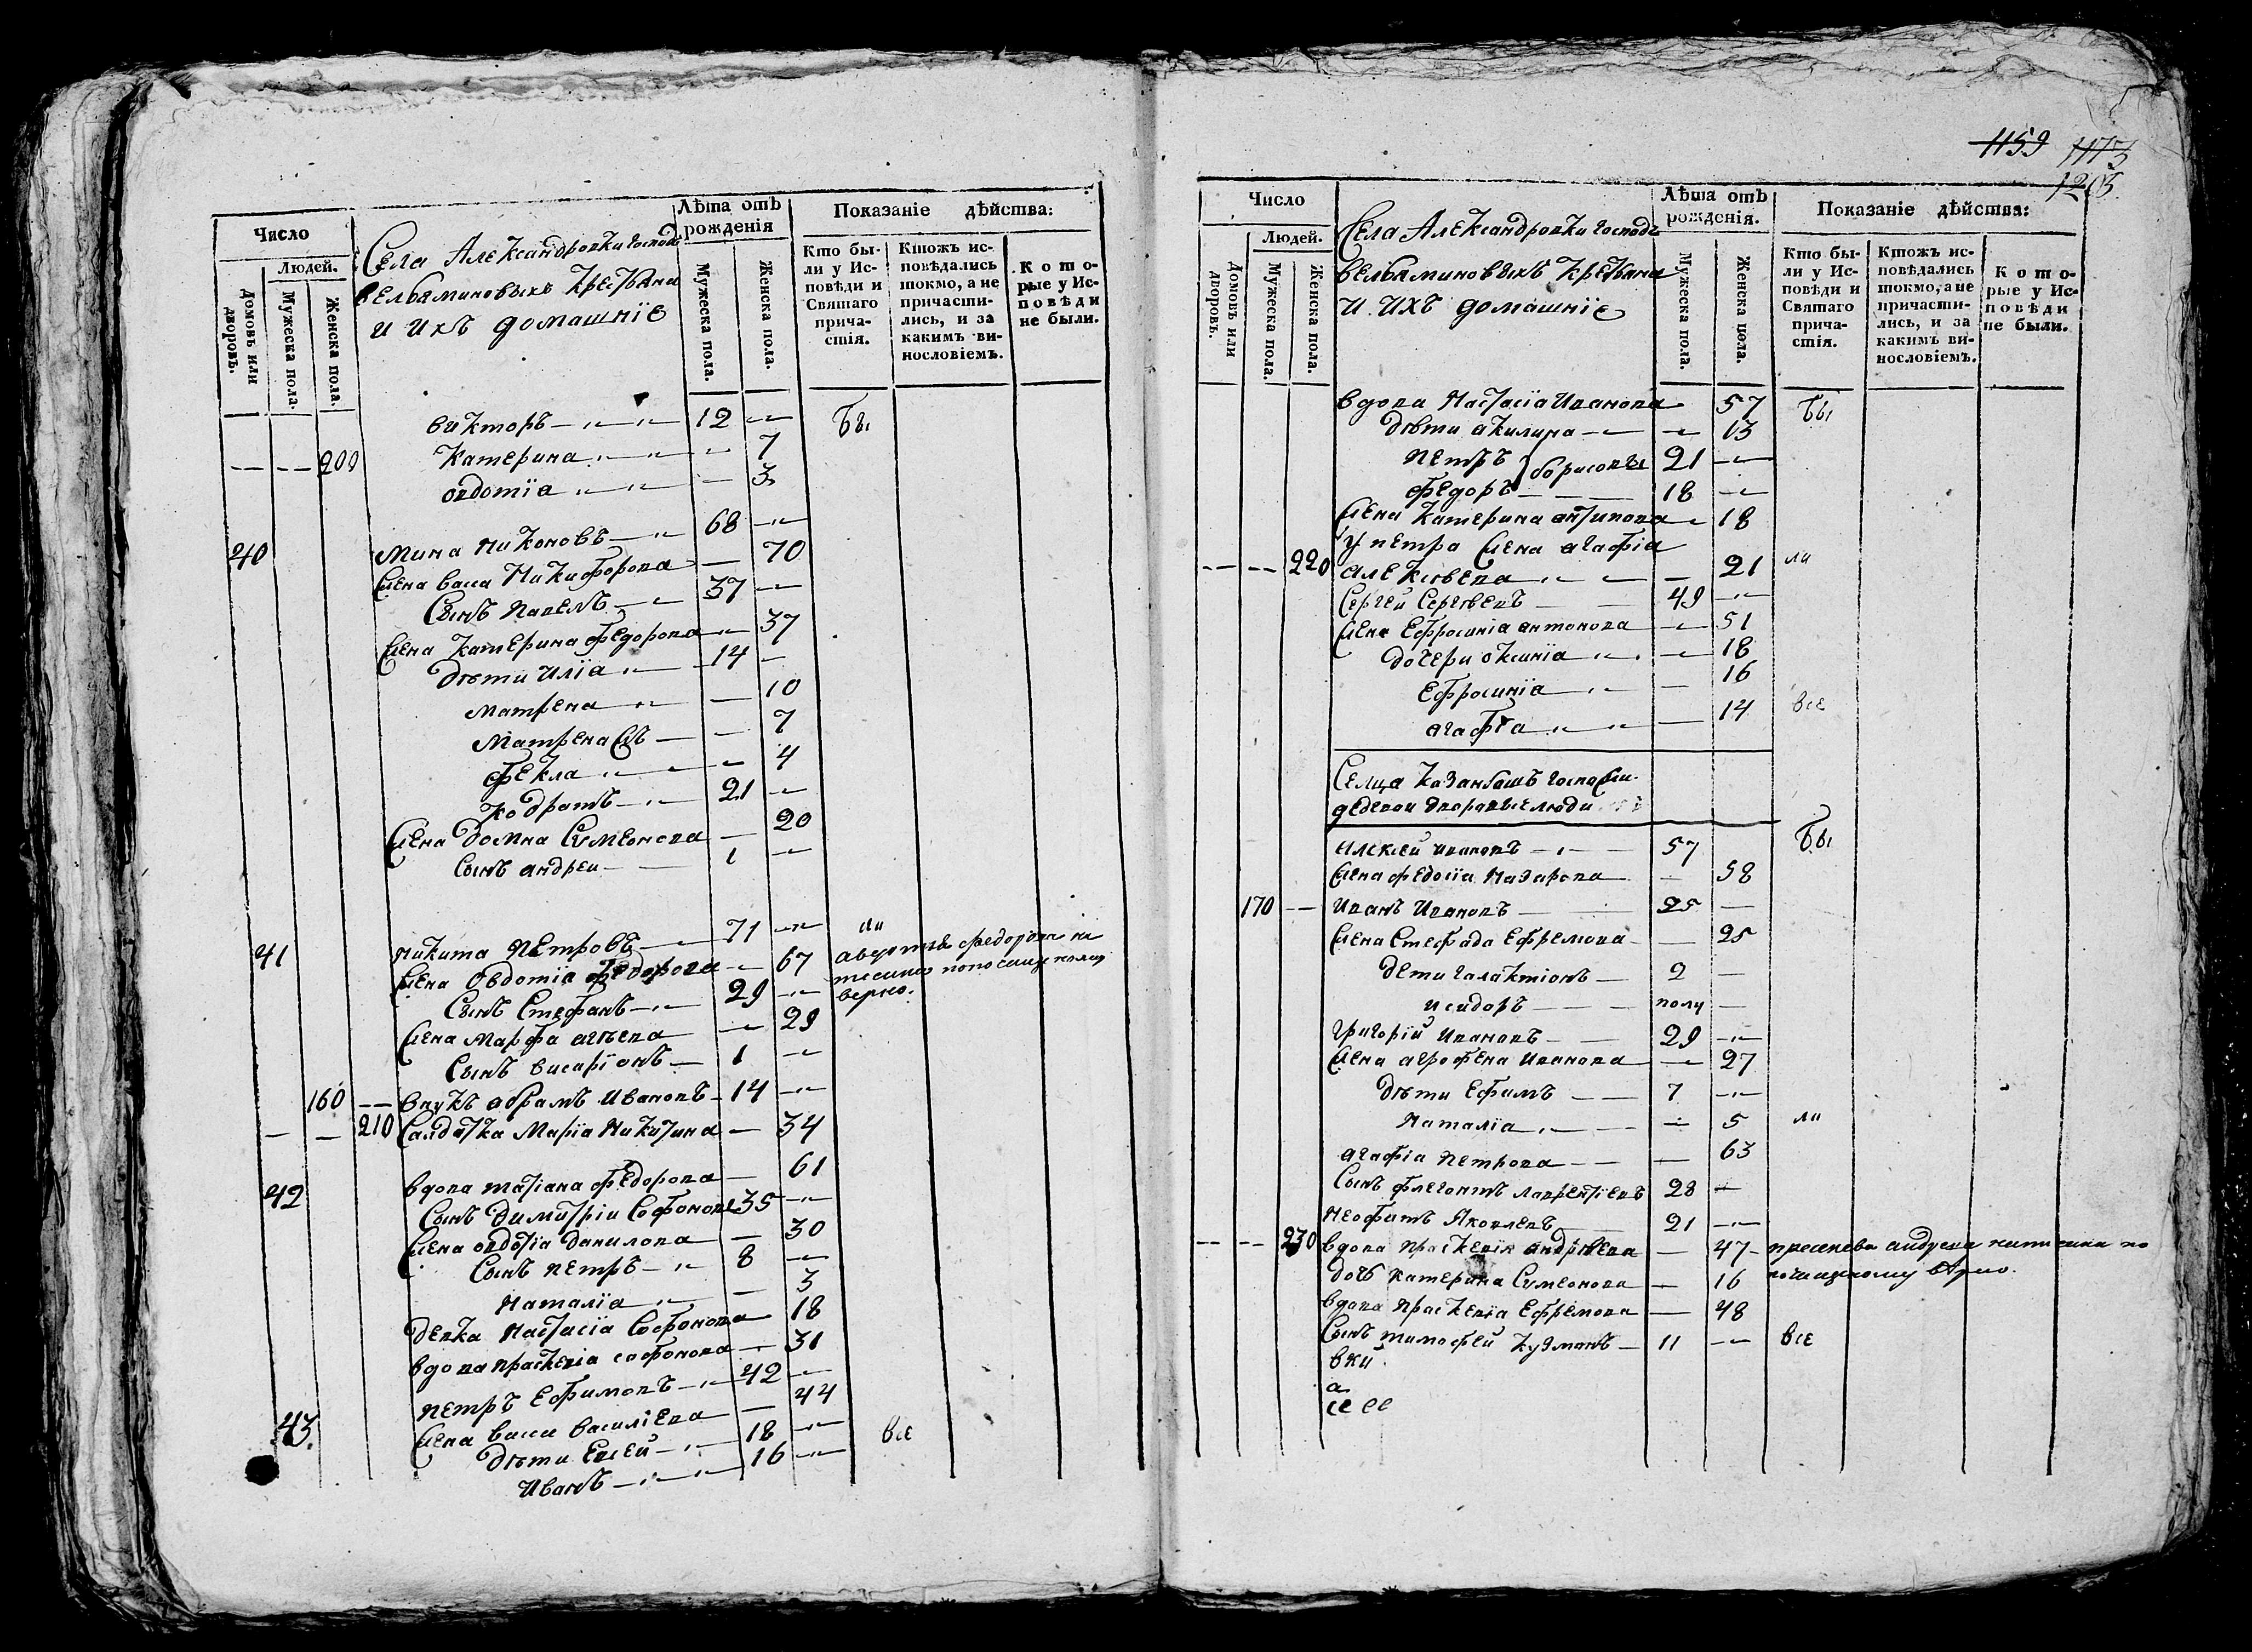 Число
Людей.
Домовъ или дворовъ.
Мужеска пола.
Женска пола.
Села Александровки господъ
вельяминовыхъ крестьяна
и ихъ домашніе
Лѣта отъ рожденія
Мужеска пола.
Женска пола.
Показаніе дѣйства:
Кто были у Исповѣди и Святаго причастія.
Ктожъ исповѣдались токмо, а не причастились, и за какимъ винословіемъ.
Которые у Исповѣди не были.
викторъ 12 бы
200 Катерина 7
овдотїа 3
40 Мина Никоновъ 68
жена васа Никифорова 70
Сынъ павелъ 37
жена Катерина федорова 37
дѣти илїа 14
матрена 10
матрена 7
фекла 4
кодратъ 21
жена домна Сѵмеонова 20
Сынъ андреи 1
41 Никита петровъ 71 ли
жена овдотїа федорова 67
верно.
Сынъ Стефанъ 29
жена марфа 29
Сынъ висарїонъ 1
160 внукъ абрамъ Ивановъ 14
210 Салдатка марїа Никитина 34
42 вдова татіана федорова 61
Сынъ димитріи Софонов 35
жена овдотіа данилова 30
Сынъ петръ 8
Наталїа 3
девка Настасїа Софонова 18
вдова праскевіа софонова 31
43. петръ ефимовъ 42
жена васса василіева 44
дѣти Евсеи 18 все
Иванъ 16
1159 1173
1205
Число
Людей.
Домовъ или дворовъ.
Мужеска пола.
Женска пола.
Села Александровки господъ
вельяминовыхъ крестьяна
и ихъ домашніе
Лѣта отъ рожденія.
Мужеска пола.
Женска пола.
Показаніе дѣйства:
Кто были у Исповѣди и Святаго причастія.
Ктожъ исповѣдались токмо, а не причастились, и за какимъ винословіемъ.
Которые у Исповѣди не были.
вдова Настасїа Иванова 57 бы
дѣти акилина 13
петръ борисовы 21
федоръ 18
жена катерина антипова 18
у петра жена агафіа
220 алексѣева 21 ли
Сергеи Сергѣевъ 49
жена Ефросиніа антонова 51
дочери оксинїа 18
Ефросинїа 16
агафїа 14 все
Селца Казанбашъ госпожи
дворовые люди
алексеи ивановъ 57 бы
жена федосїа Назарова 58
170 Иванъ Ивановъ 25
жена Ефремова 25
дети галактіонъ 2
исидоръ полу
григорїй Ивановъ 29
жена агрофена Иванова 27
дѣти Ефимъ 7
Наталїа 5 ли
агафіа петрова 63
Сынъ флегонтъ лаврентїевъ 28
Неофитъ Яковлевъ 21
230 вдова праскевїа андрѣева 47
дочь катерина Сѵмеонова 16
вдова праскевїа Ефремова 48
Сынъ тимофеи Кузминъ 11 все